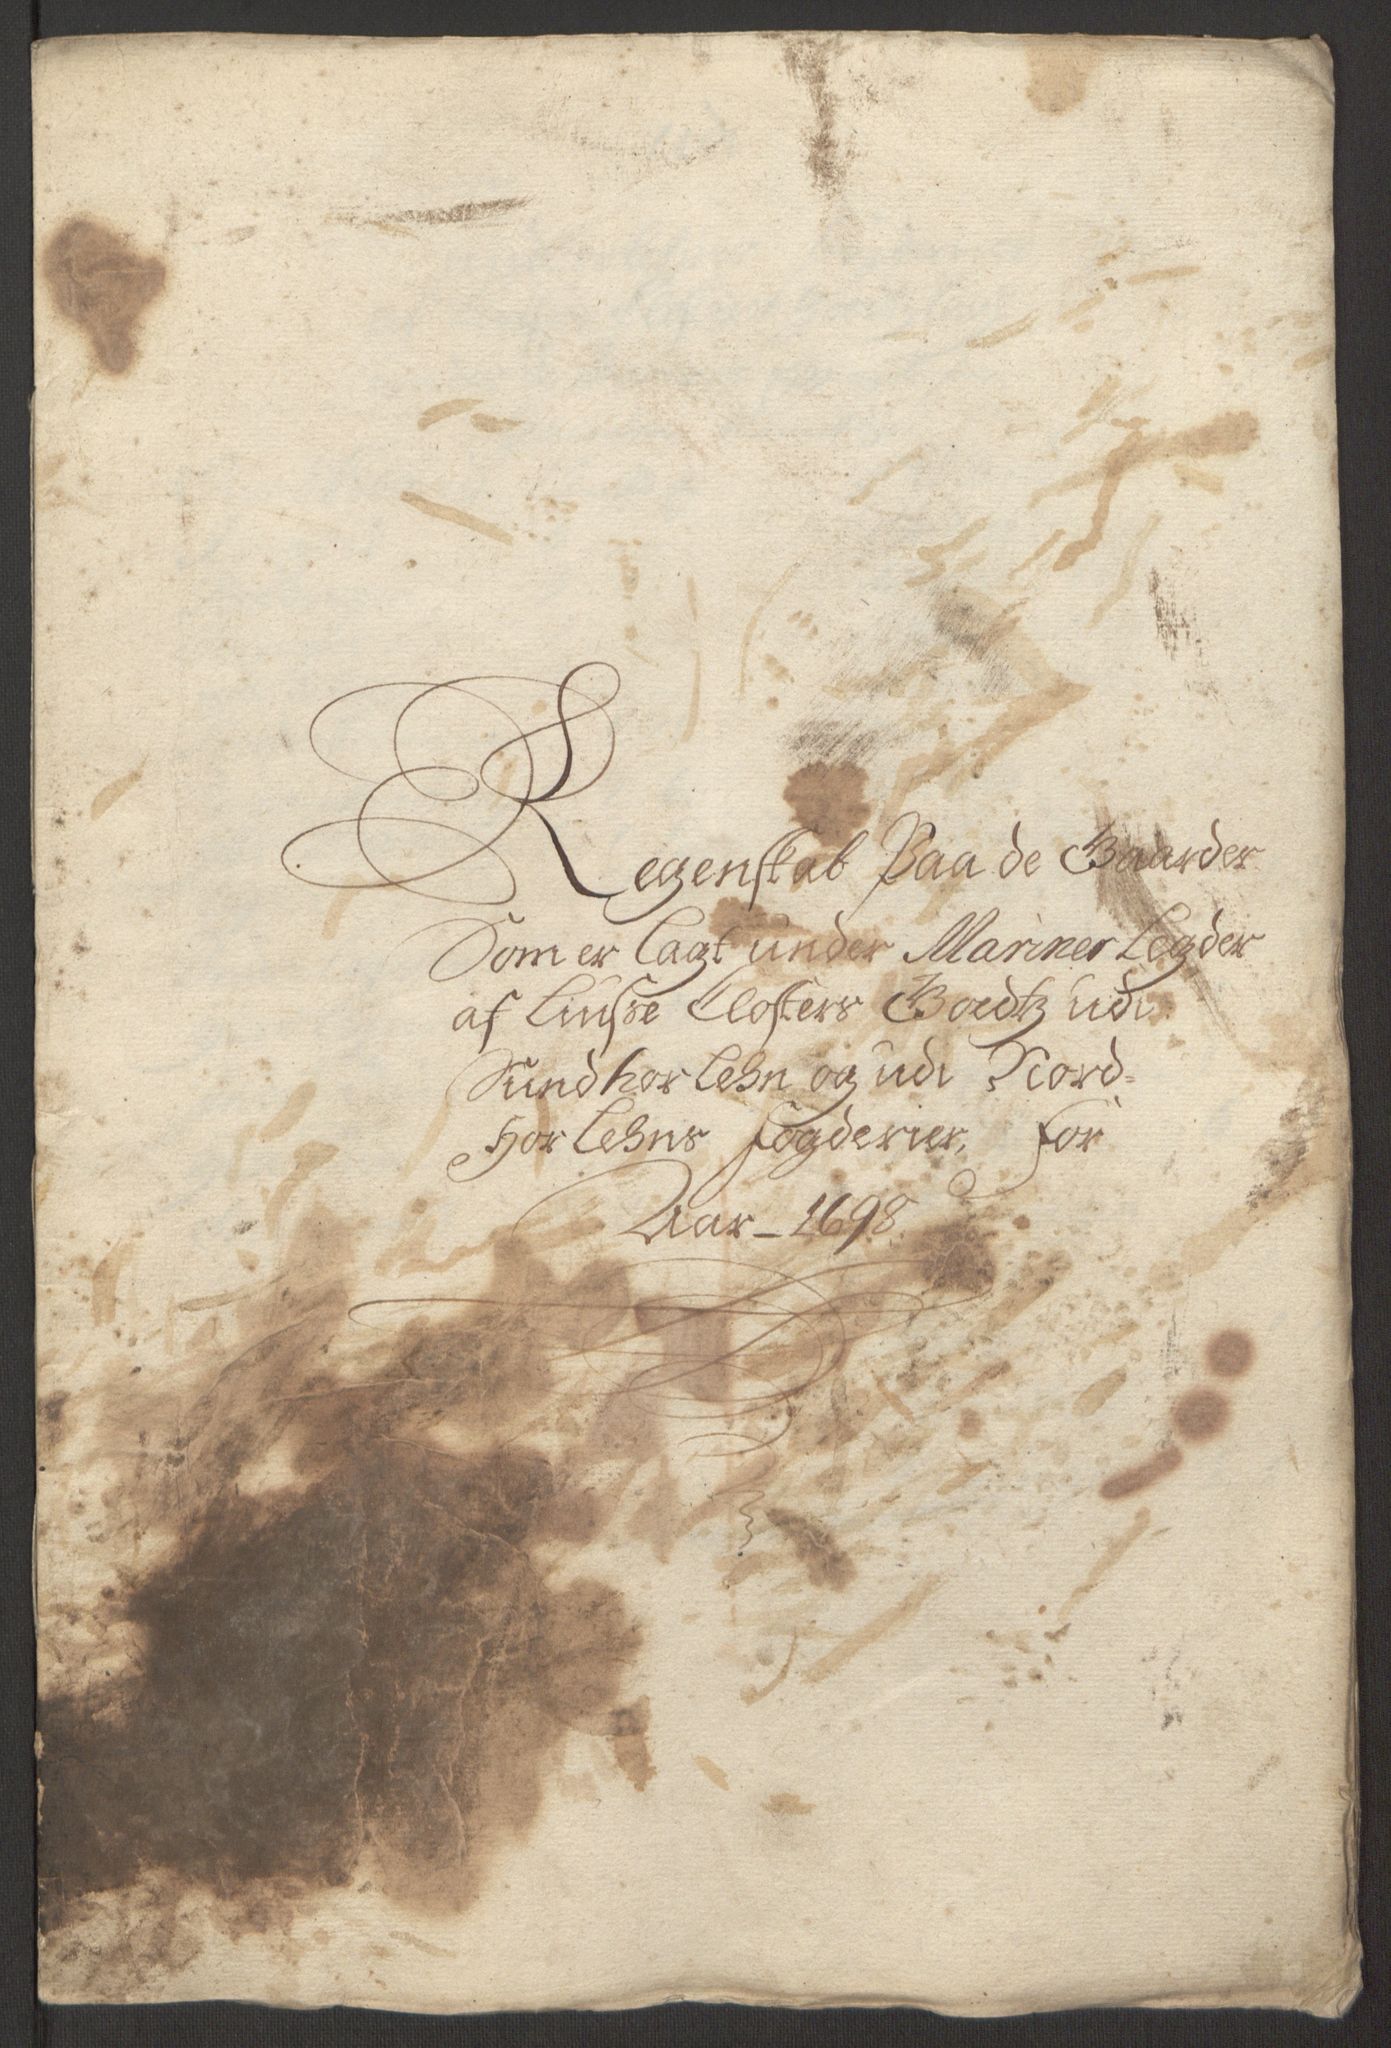 Regenskab Paa de Gaarder
Som er lagt under Mariner Legder
af Liusse Closters Goedtz udi
Sundhor Lehn og udi Nord-
Hor Lehns Fogderier, for
Aar - 1698